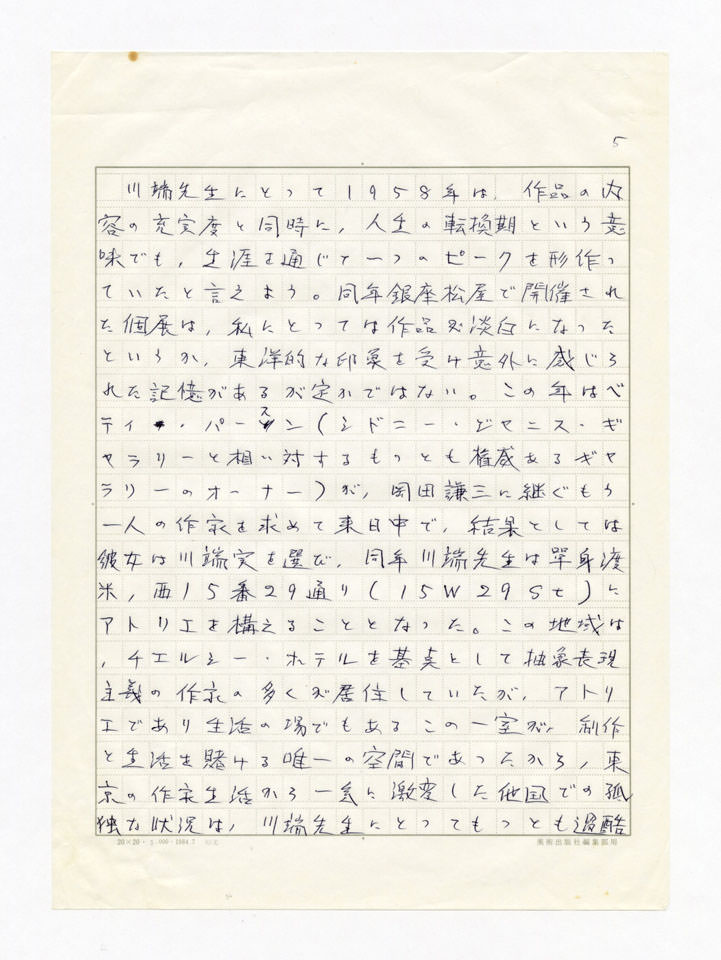 5
川端先生にとって1958年は、作品の内
容の充実度と同時に、人生の転換期という意
味でも、生涯を通じて一つのピークを形作っ
ていたと言えよう。同年銀座松屋で開催され
た個展は、私にとっては作品が淡白になった
というか、東洋的な印象を受け意外に感じら
れた記憶があるが定かではない。この年はベ
ティ・パースン(シドニー・ジャニス・ギ
ャラリーと相い対するもっとも権威あるギャ
ラリーのオーナー)が、岡田謙三に継ぐもう
一人の作家を求めて来日中で、結果としては
彼女は川端実を選び、同年川端先生は単身渡
米、西15番29通り(15W29St)に
アトリエを構えることとなった。この地域は
、チエルシー・ホテルを基点として抽象表現
主義の作家の多くが居住していたが、アトリ
エであり生活の場でもあるこの一室が、制作
と生活を賭ける唯一の空間であったから、東
京の作家生活から一気に激変した他国での孤
独な状況は、川端先生にとってもっとも過酷
20×20・5,000・1984.7
美術出版社編集部用